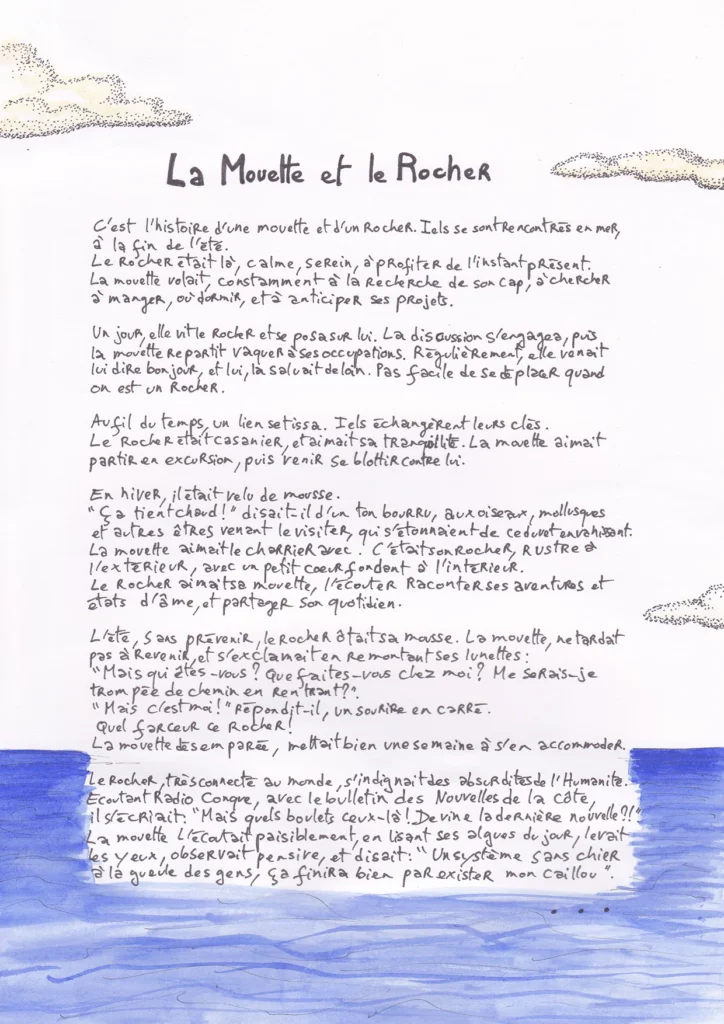 La Mouette et le Rocher
C'est l'histoire d'une mouette et d'un Rocher. Iels se sont rencontrés en mer,
à la fin de l'été.
Le Rocher était là, calme, serein, à profiter de l'instant présent.
La mouette volait, constamment à la recherche de son cap, à chercher
à manger, où dormir, et à anticiper ses projets.
Un jour, elle vit le Rocher et se posa sur lui. La discussion s'engagea, puis
la mouette repartit vaquer à ses occupations. Régulièrement, elle venait
lui dire bonjour, et lui, la saluait de loin. Pas facile de se déplacer quand
on est un Rocher.
Au fil du temps, un lien se tissa. Iels échangèrent leurs clés.
Le Rocher était casanier, et aimait sa tranquillité. La mouette aimait
partir en excursion, puis venir se blottir contre lui.
En hiver, il était velu de mousse.
"Ça tient chaud!" disait-il d'un ton bourru, aux oiseaux, mollusques
et autres âtres venant le visiter, qui s'étonnaient de ce duvet envahissant.
La mouette aimait le charrier avec. C'était son Rocher, rustre à
l'extérieur, avec un petit cœur fondant à l'intérieur.
Le Rocher aimait sa mouette, l'écouter raconter ses aventures et
états d'âme, et partager son quotidien.
L'été, sans prévenir, le rocher ôtait sa mousse. La mouette, ne tardait
pas à revenir, et s'exclamait en remontant ses lunettes :
"Mais qui êtes-vous? Que faites-vous chez moi? Me serais-je
trompée de chemin en rentrant?".
"Mais c'est moi!" répondit-il, un sourire en carré.
Quel farceur ce Rocher!
La mouette désemparée, mettait bien une semaine à s'en accommoder.
Le Rocher, très connecté au monde, s'indignait des absurdités de l'Humanité.
Ecoutant Radio Congre, avec le bulletin des Nouvelles de la côte,
il s'écriait: "Mais quels boulets ceux-là! Devine la dernière nouvelle?!"
La mouette l'écoutait paisiblement, en lisant ses algues du jour, levait
les yeux, observait pensive, et disait: "Un système sans chier
à la gueule des gens, ça finira bien par exister mon caillou".
...